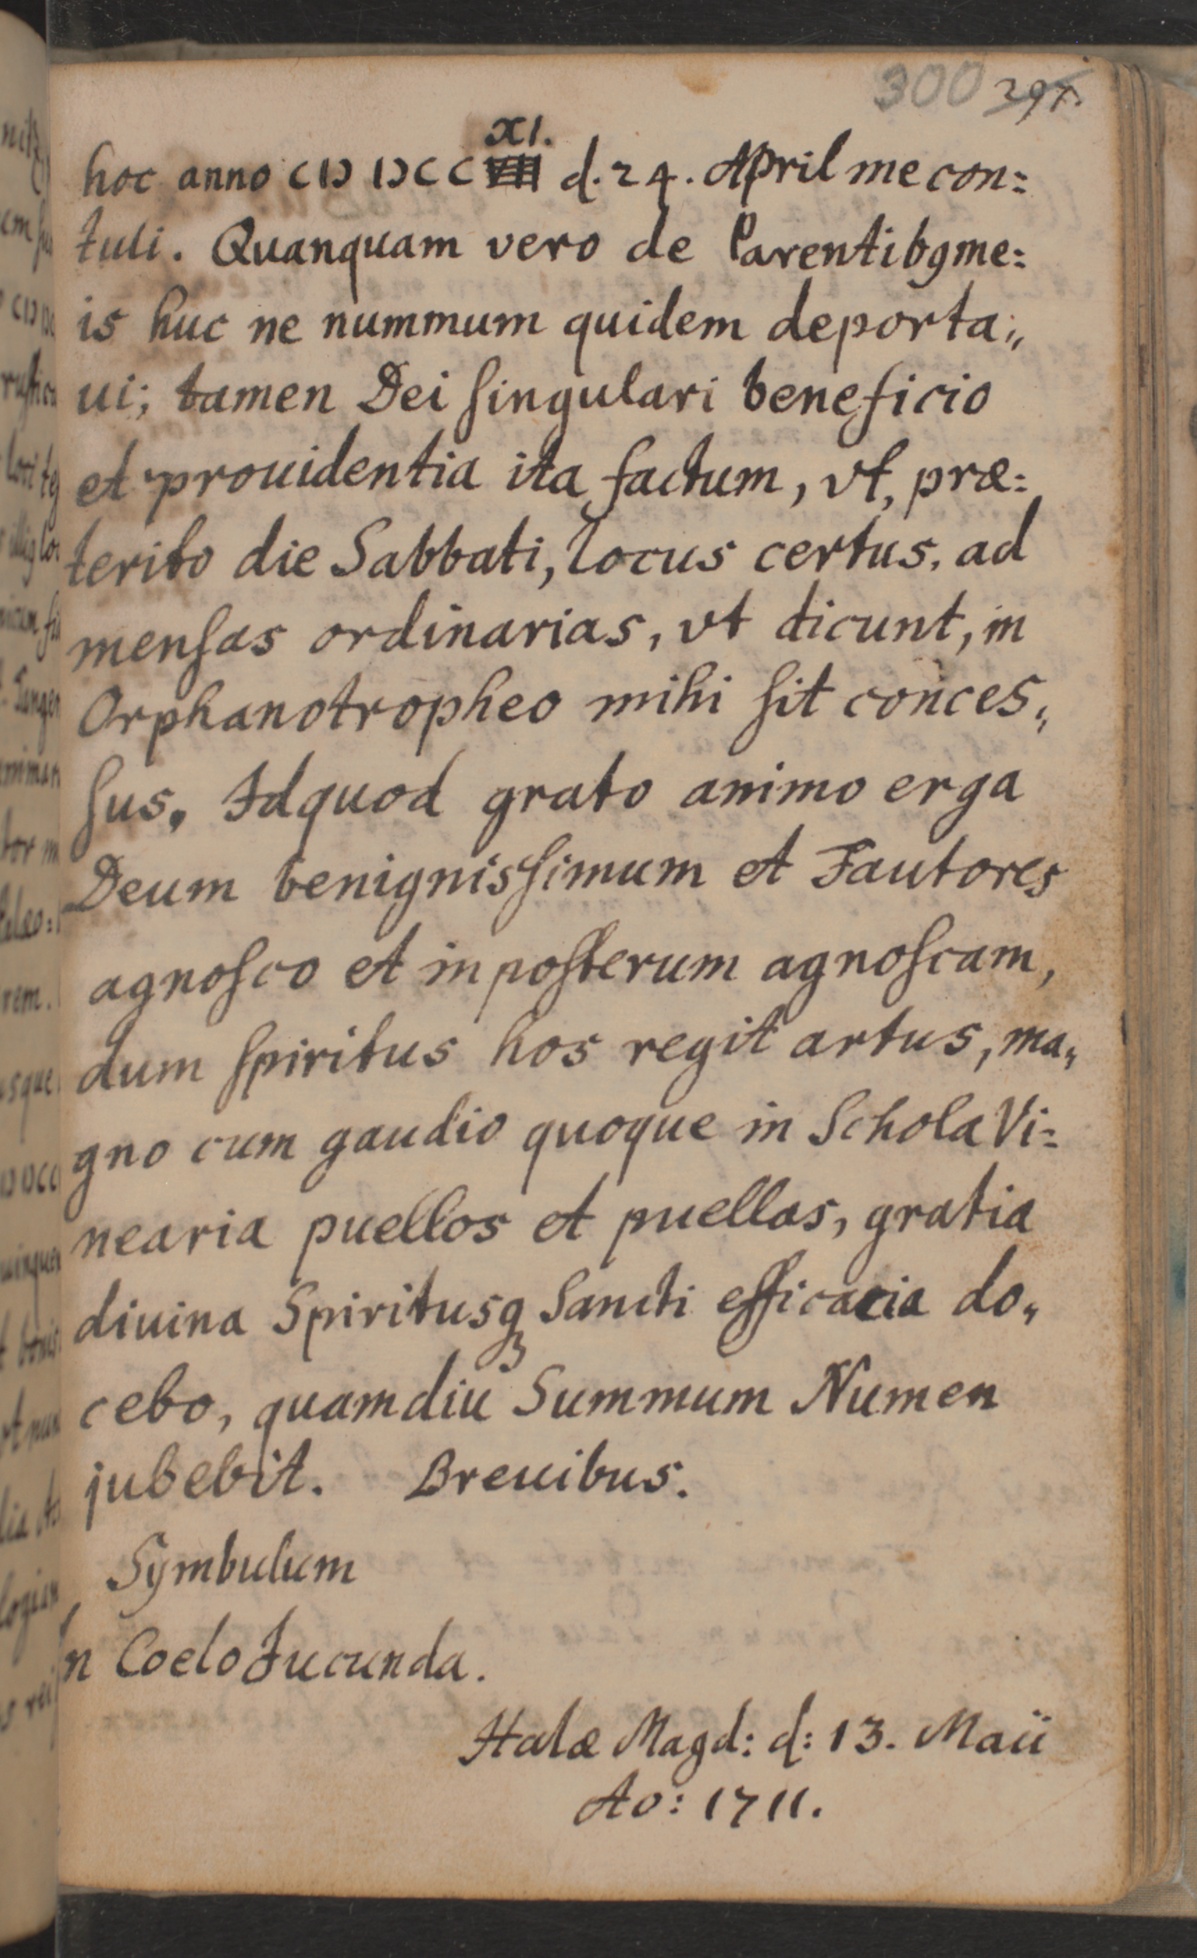 300 297.
XI.
hoc anno CIƆ IƆCC VII d. 24. April me con:
tuli. Quanquam vero de Parentibꝰ me:
is huc ne nummum quidem deporta„
ui; tamen Dei ſingulari beneficio
et prouidentia ita factum, vt, præ:
terito die Sabbati, locus certus, ad
menſas ordinarias, vt dicunt, in
Orphanotropheo mihi ſit conces„
ſus. Idquod grato animo erga
Deum benignisſimum et Fautores
agnoſco et in poſterum agnoſcam,
dum ſpiritus hos regit artus, ma„
gno cum gaudio quoque in Schola Vi:
nearia puellos et puellas, gratia
diuina Spiritusqꝫ Sancti efficacia do„
cebo, quamdiu Summum Numen
jubebit. Breuibus.
Symbulum
In Coelo Jucunda.
Halæ Magd: d: 13. Maii
Ao: 1711.